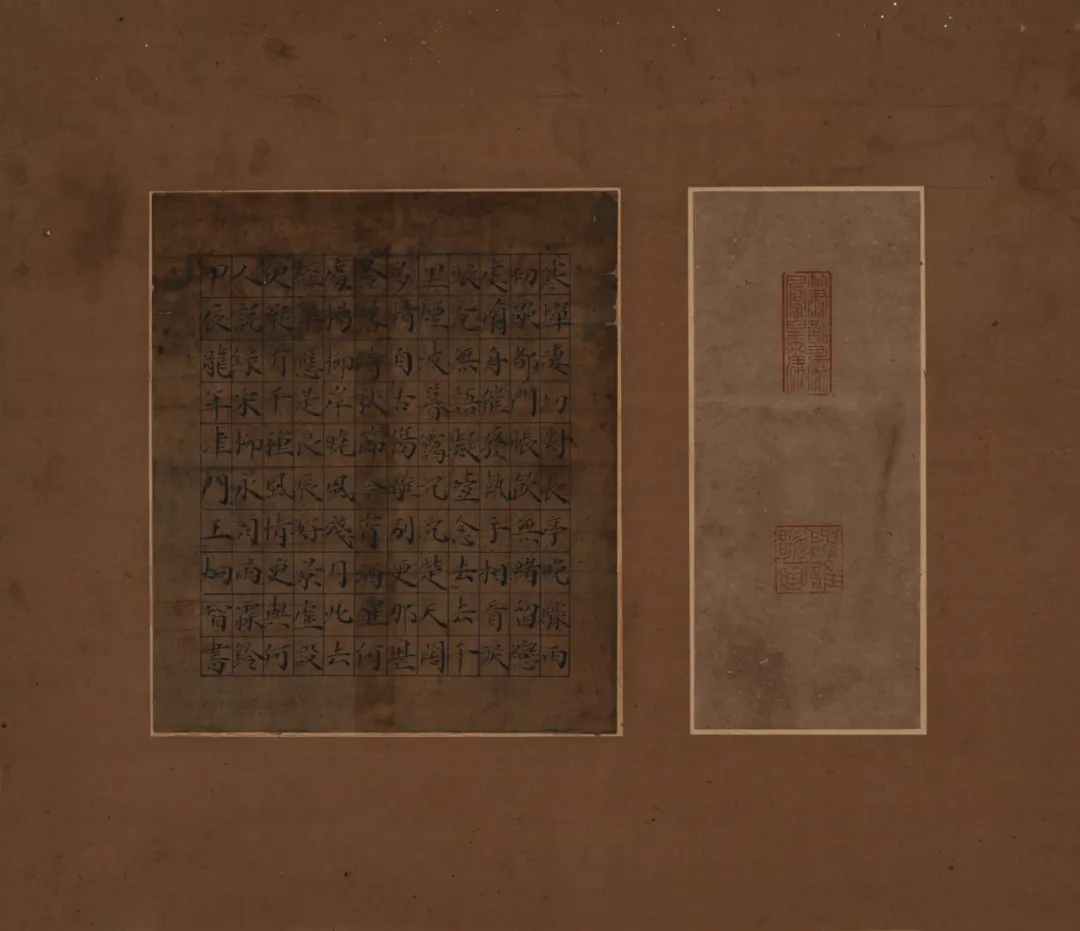 寒蟬凄切對長亭晚驟雨
初歇都門帳飲無緒留戀
處蘭舟催發執手相看淚
眼竟無語凝噎念去去千
里煙波暮靄沉沉楚天闊
多情自古傷離別更那堪
冷落清秋節今宵酒醒何
處楊柳岸曉風殘月此去
經年應是良辰好景虛設
便縱有千種風情更與何
人說錄宋柳永詞雨霖鈴
甲辰龍年津門王炯智書